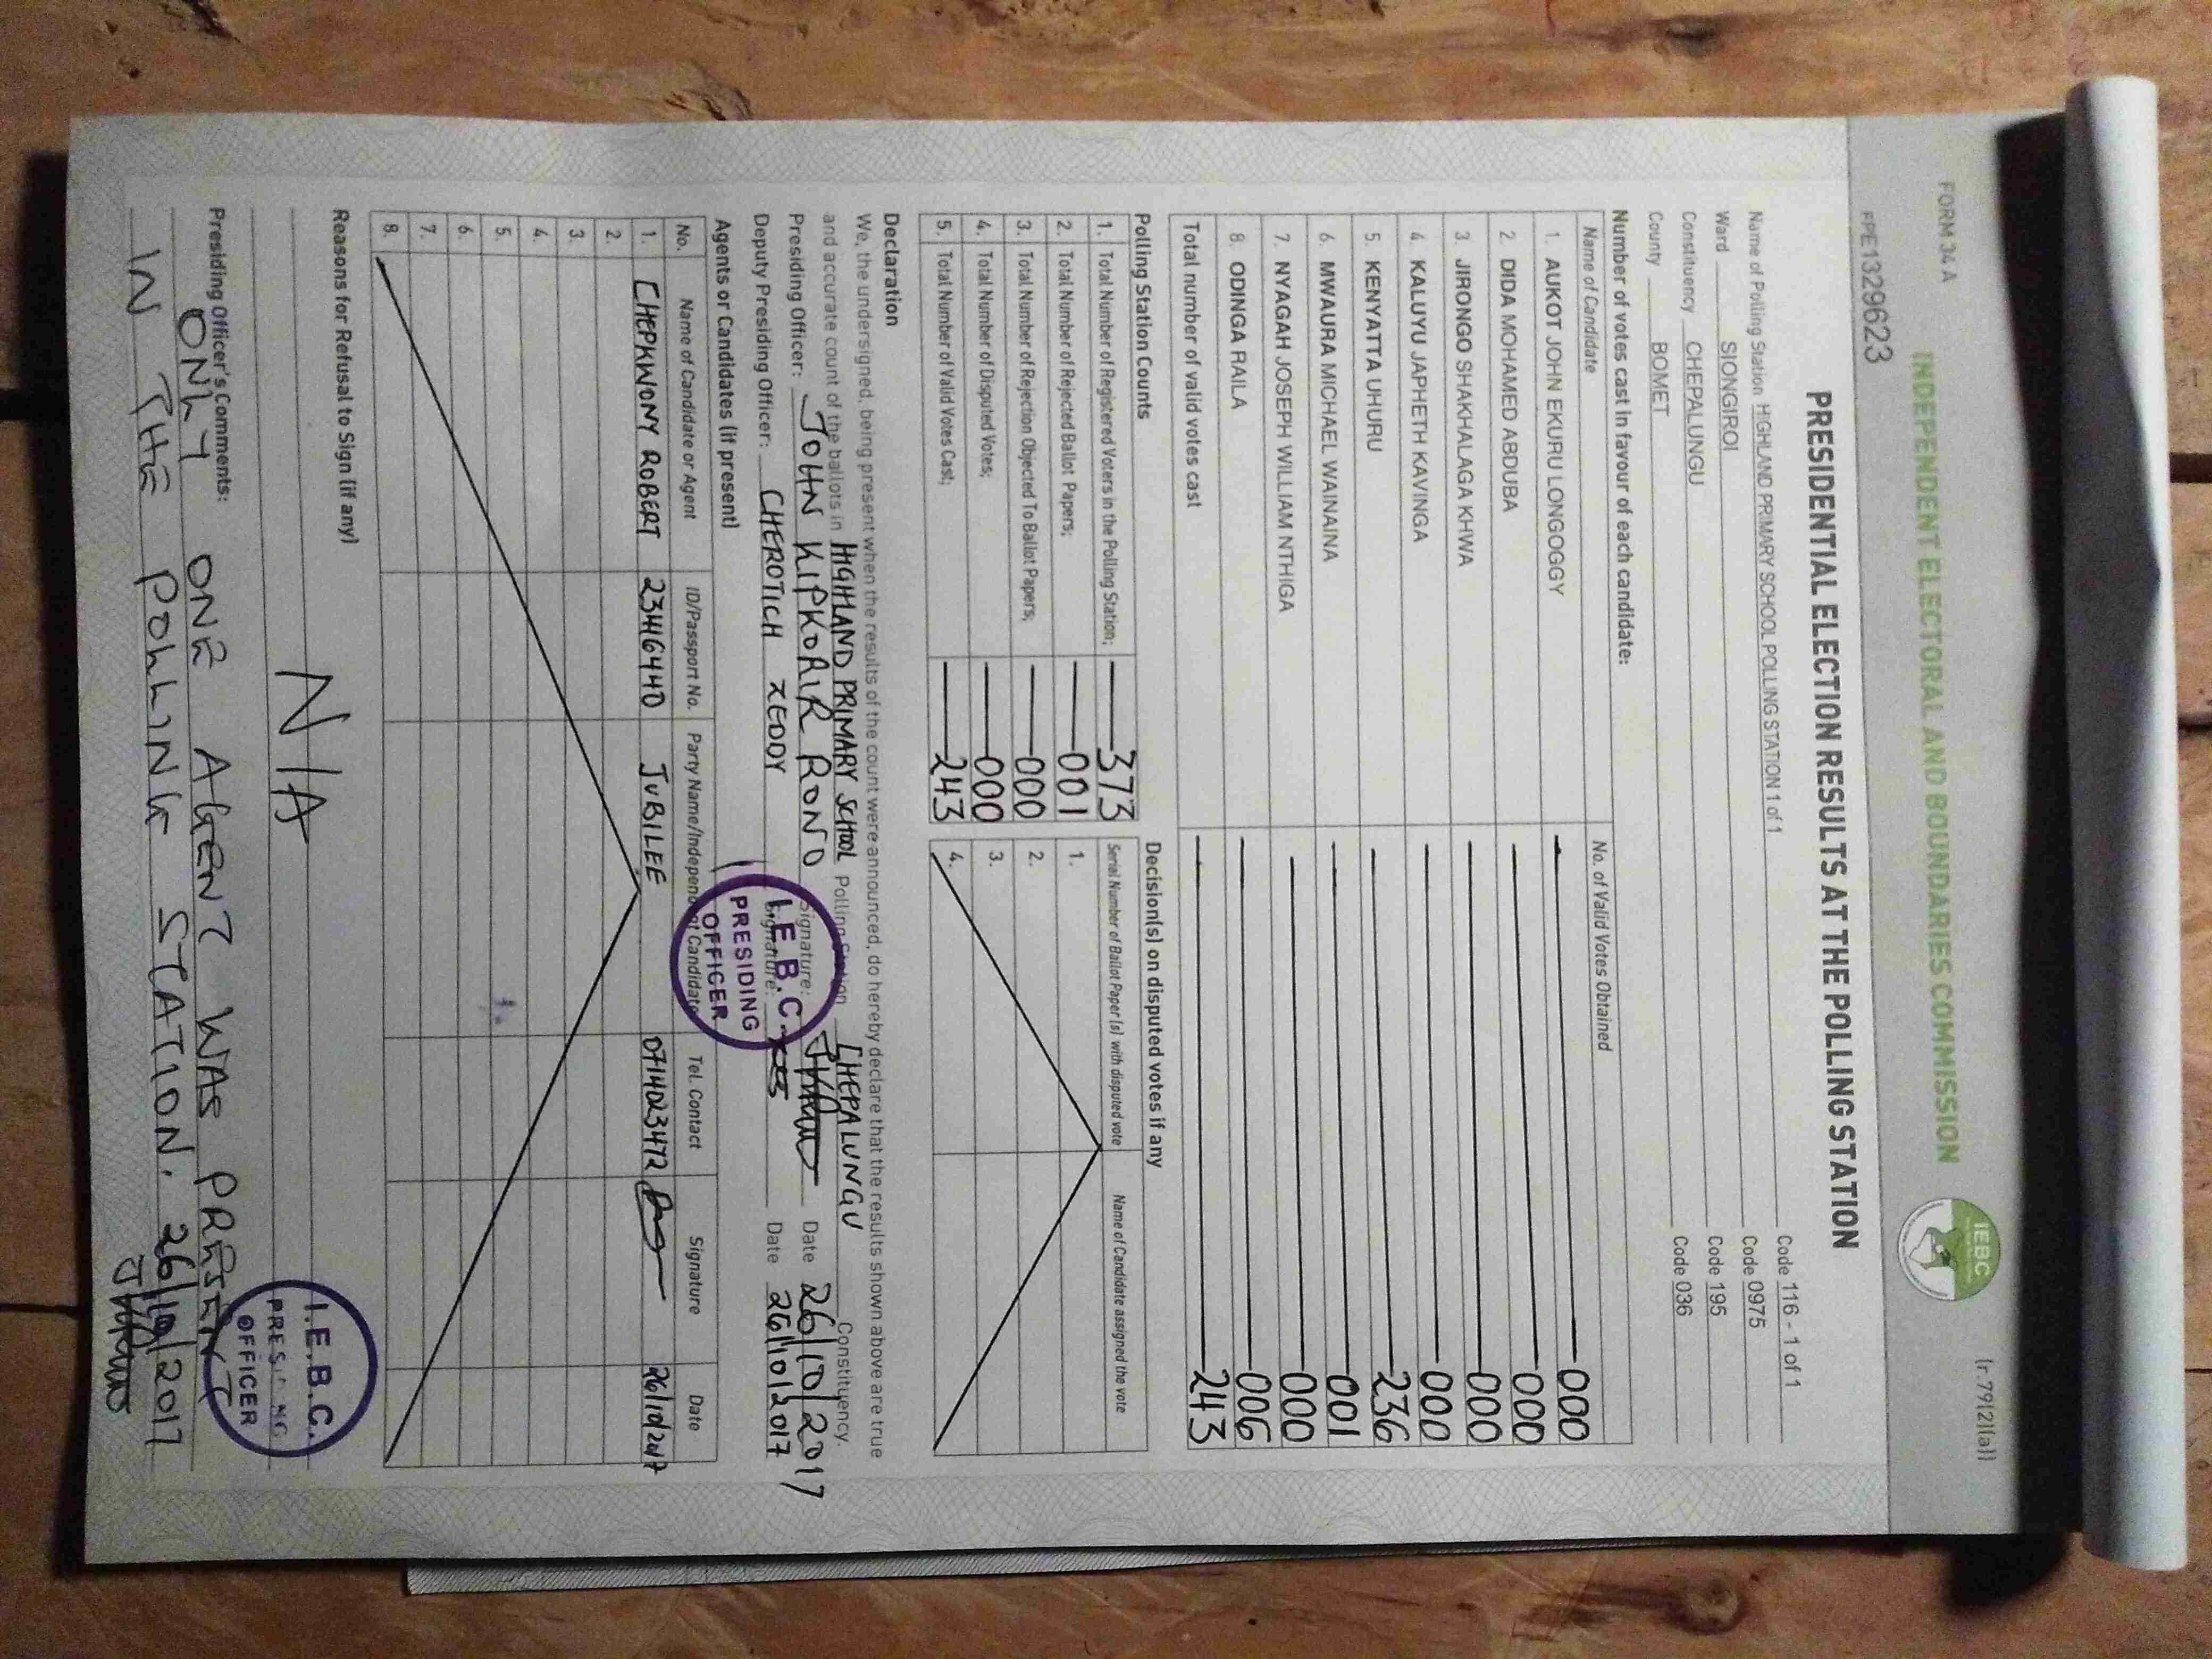 FORM 34 A
(r.79(2)(a))
INDEPENDENT ELECTORAL AND BOUNDARIES COMMISSION
IEBC
PRESIDENTIAL ELECTION RESULTS AT THE POLLING STATION
Name of Polling Station HIGHLAND PRIMARY SCHOOL POLLING STATION 1 of 1 Code 116 - 1 of 1
Ward SIONGIROI Code 0975
Constituency CHEPALUNGU Code 195
County BOMET Code 036
Number of votes cast in favour of each candidate:
Name of Candidate No. of Valid Votes Obtained
1. AUKOT JOHN EKURU LONGOGGY 000
2. DIDA MOHAMED ABDUBA 000
3. JIRONGO SHAKHALAGA KHWA 000
4. KALUYU JAPHETH KAVINGA 000
5. KENYATTA UHURU 236
6. MWAURA MICHAEL WAINAINA 001
7. NYAGAH JOSEPH WILLIAM NTHIGA 000
8. ODINGA RAILA 006
Total number of valid votes cast 243
Polling Station Counts
1. Total Number of Registered Voters in the Polling Station; 373
2. Total Number of Rejected Ballot Papers; 001
3. Total Number of Rejection Objected To Ballot Papers; 000
4. Total Number of Disputed Votes; 000
5. Total Number of Valid Votes Cast; 243
Decision(s) on disputed votes if any
Serial Number of Ballot Paper (s) with disputed vote Name of Candidate assigned the vote
1.
2.
3.
4.
Declaration
We, the undersigned, being present when the results of the count were announced, do hereby declare that the results shown above are true
and accurate count of the ballots in HIGHLAND PRIMARY SCHOOL Polling Station CHEPALUNGU Constituency.
Presiding Officer: JOHN KIPKORIR RONO Signature: Date 26/10/2017
Deputy Presiding Officer: CHEROTICH Signature: Date 26/10/2017
I.E.B.C.
PRESIDING
OFFICER
Agents or Candidates (if present)
No. Name of Candidate or Agent ID/Passport No. Party Name/Independent Candidate Tel. Contact Signature Date
1. CHEPKWONY ROBERT 23416440 JUBILEE 0714023472 26/10/2017
2.
3.
4.
5.
6.
7.
8.
Reasons for Refusal to Sign (if any)
N/A
I.E.B.C.
PRESIDING
OFFICER
Presiding Officer's Comments:
ONLY ONE AGENT WAS PRESENT
IN THE POLLING STATION. 26/10/2017